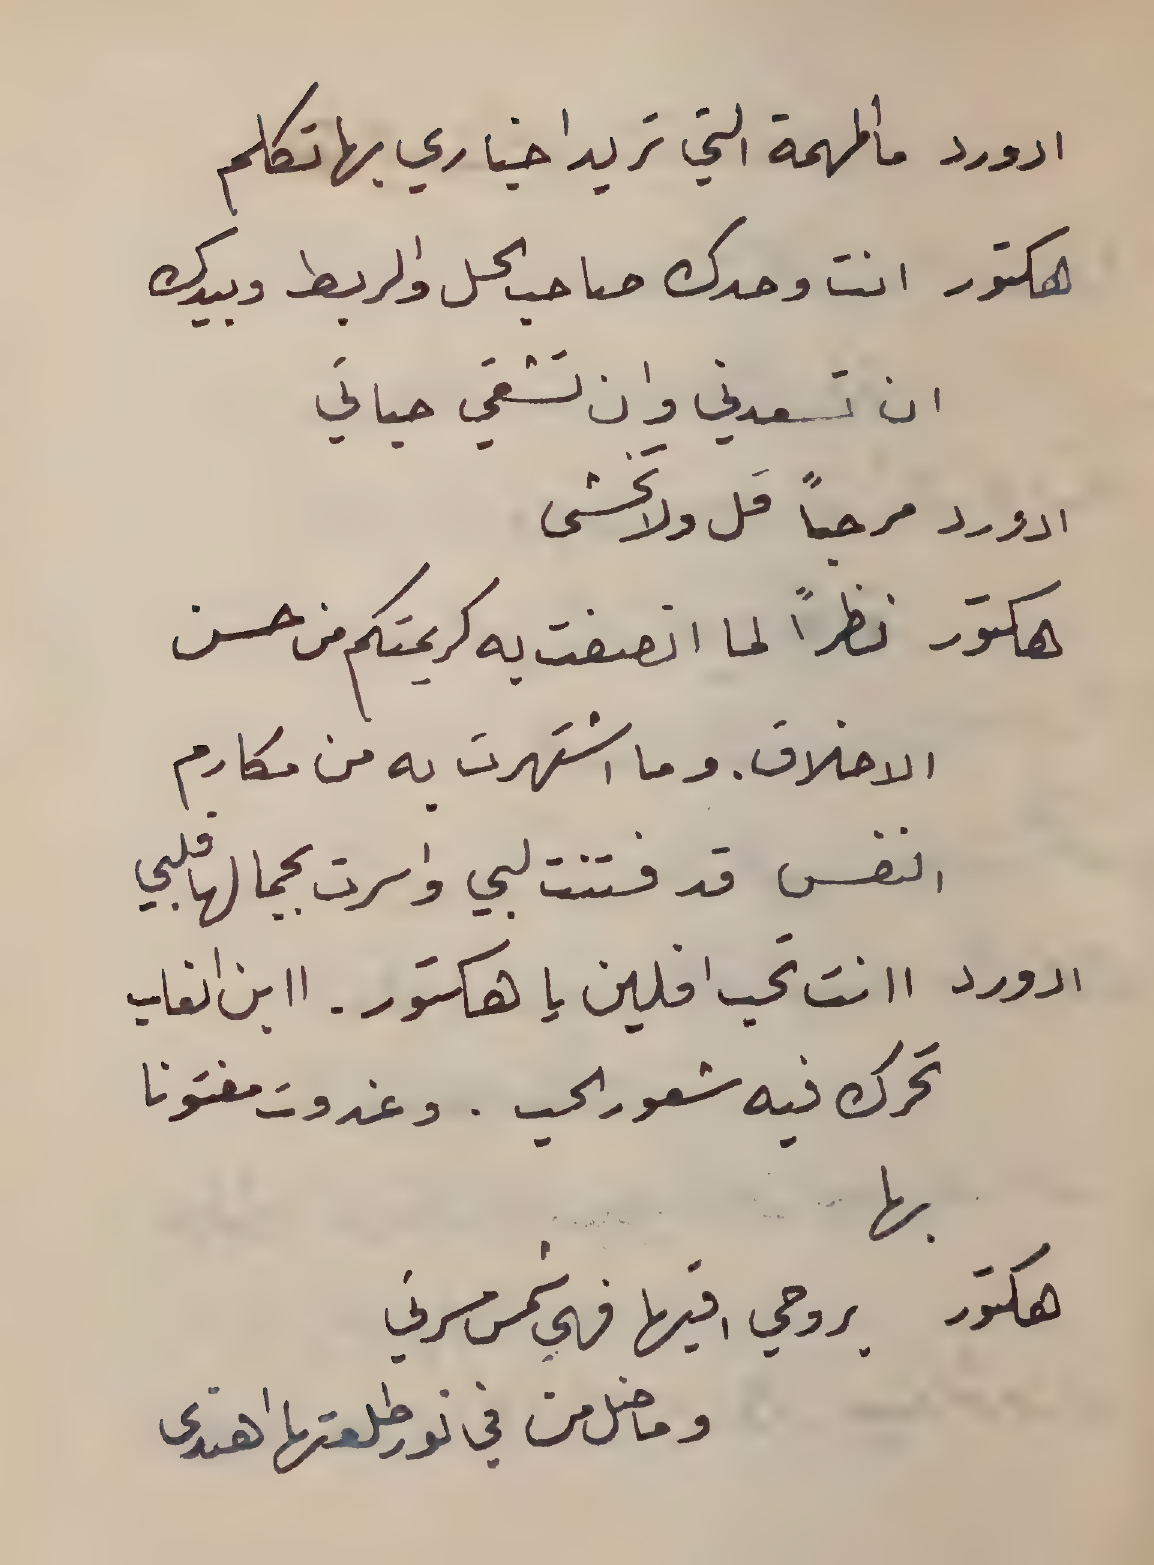 ادورد ما المهمة التي تريد اخباري بها تكلم
هكتور انت وحدك صاحب الحل والربط وبيدك
ان تسعدني وان تشقي حياتي
ادورد مرحباً قل ولا تخشى
هكتور نظراً لما اتصفت به كريمتكم من حسن
الاخلاق. وما اشتهرت به من مكارم
النفس قد فتنت لبي واسرت بجمالها قلبي
ادورد اانت تحب افلين يا هكتور. اابن الغاب
تحرك فيه شعور الحب. وغدوت مفتونا
بها
هكتور بروحي افديها فهي شمس مسرتي
وما ضل من في نور طلعتها اهتدى